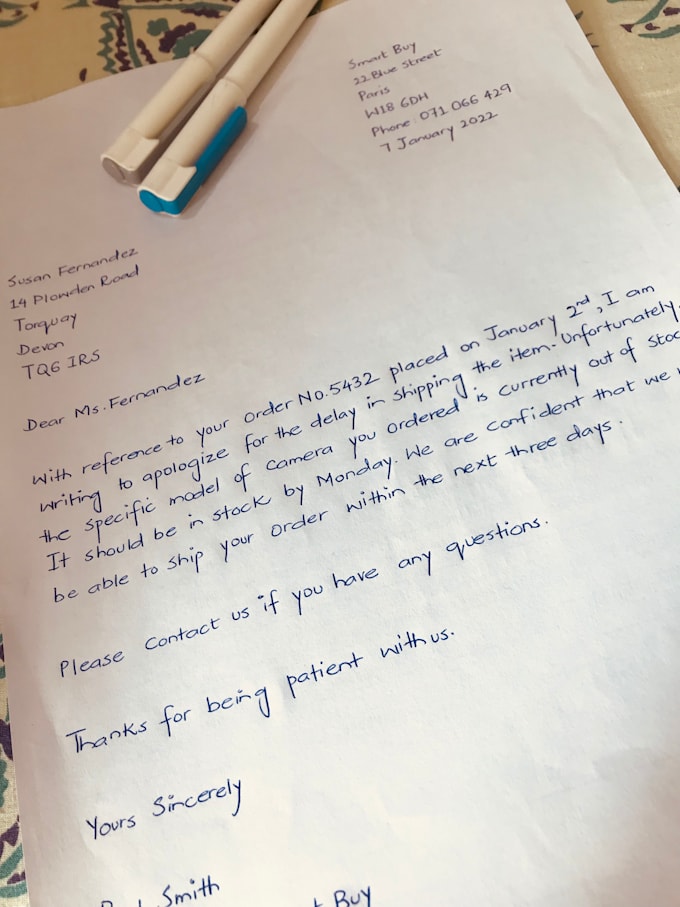 Smart Buy
22 Blue Street
Paris
W18 6DH
Phone: 071 066 429
7 January 2022
Susan Fernandez
14 Plowden Road
Torquay
Devon
TQ6 IRS
Dear Ms. Fernandez
With reference to your order No.5432 placed on January 2nd, I am
writing to apologize for the delay in shipping the item. Unfortunately,
the specific model of camera you ordered is currently out of
It should be in stock by Monday. We are confident that we
be able to ship your order within the next three days.
Please contact us if you have any questions.
Thanks for being patient with us.
Yours Sincerely
Smith
Buy